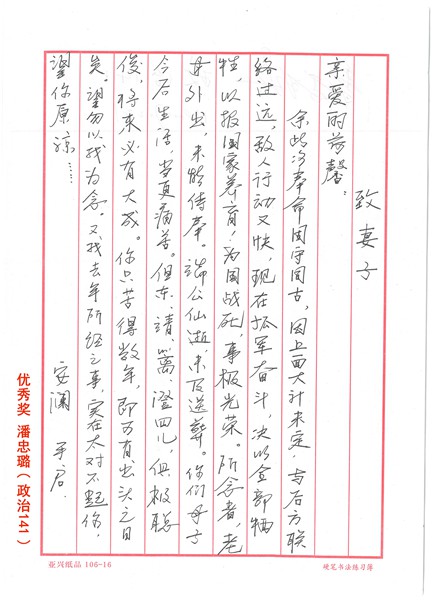 致妻子
亲爱的荷馨：
余此次奉命固守同古，因上面大计未定，与后方联
络过远，敌人行动又快，现在孤军奋斗，决以全部牺
牲，以报国家养育，为国战死，事极光荣。所念者，老
母外出，未能侍奉。端公仙逝，未及送葬。你们母子
今后生活，当更痛苦。但东、靖、篱、澄四儿，俱极聪
俊，将来必有大成。你只苦得数年，即可有出头之日
矣。望勿以我为念。又我去年所经之事，实在太对不起你，
望你原谅……
安澜 手启.
优秀奖 潘忠璐（政治141）
亚兴纸品 106-16
硬笔书法练习簿